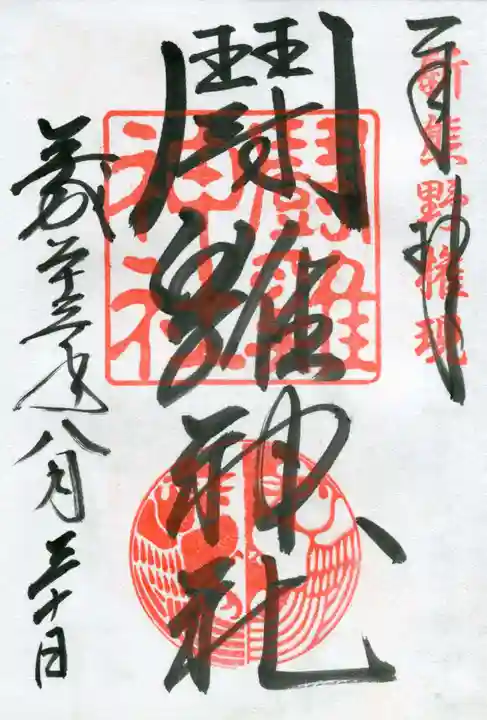 奉拝
新熊野権現
鬪雞神社
鬪雞
神社
平成二十三年八月三十日